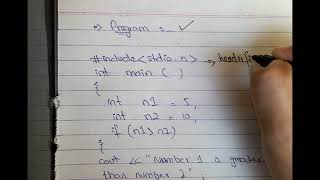 → Program :- ✓
#include<stdio.h> → header fi
int main ( )
{
int n1 = 5,
int n2 = 10,
if (n1>n2)
{
cout << "Number 1 is greater
than number 2",